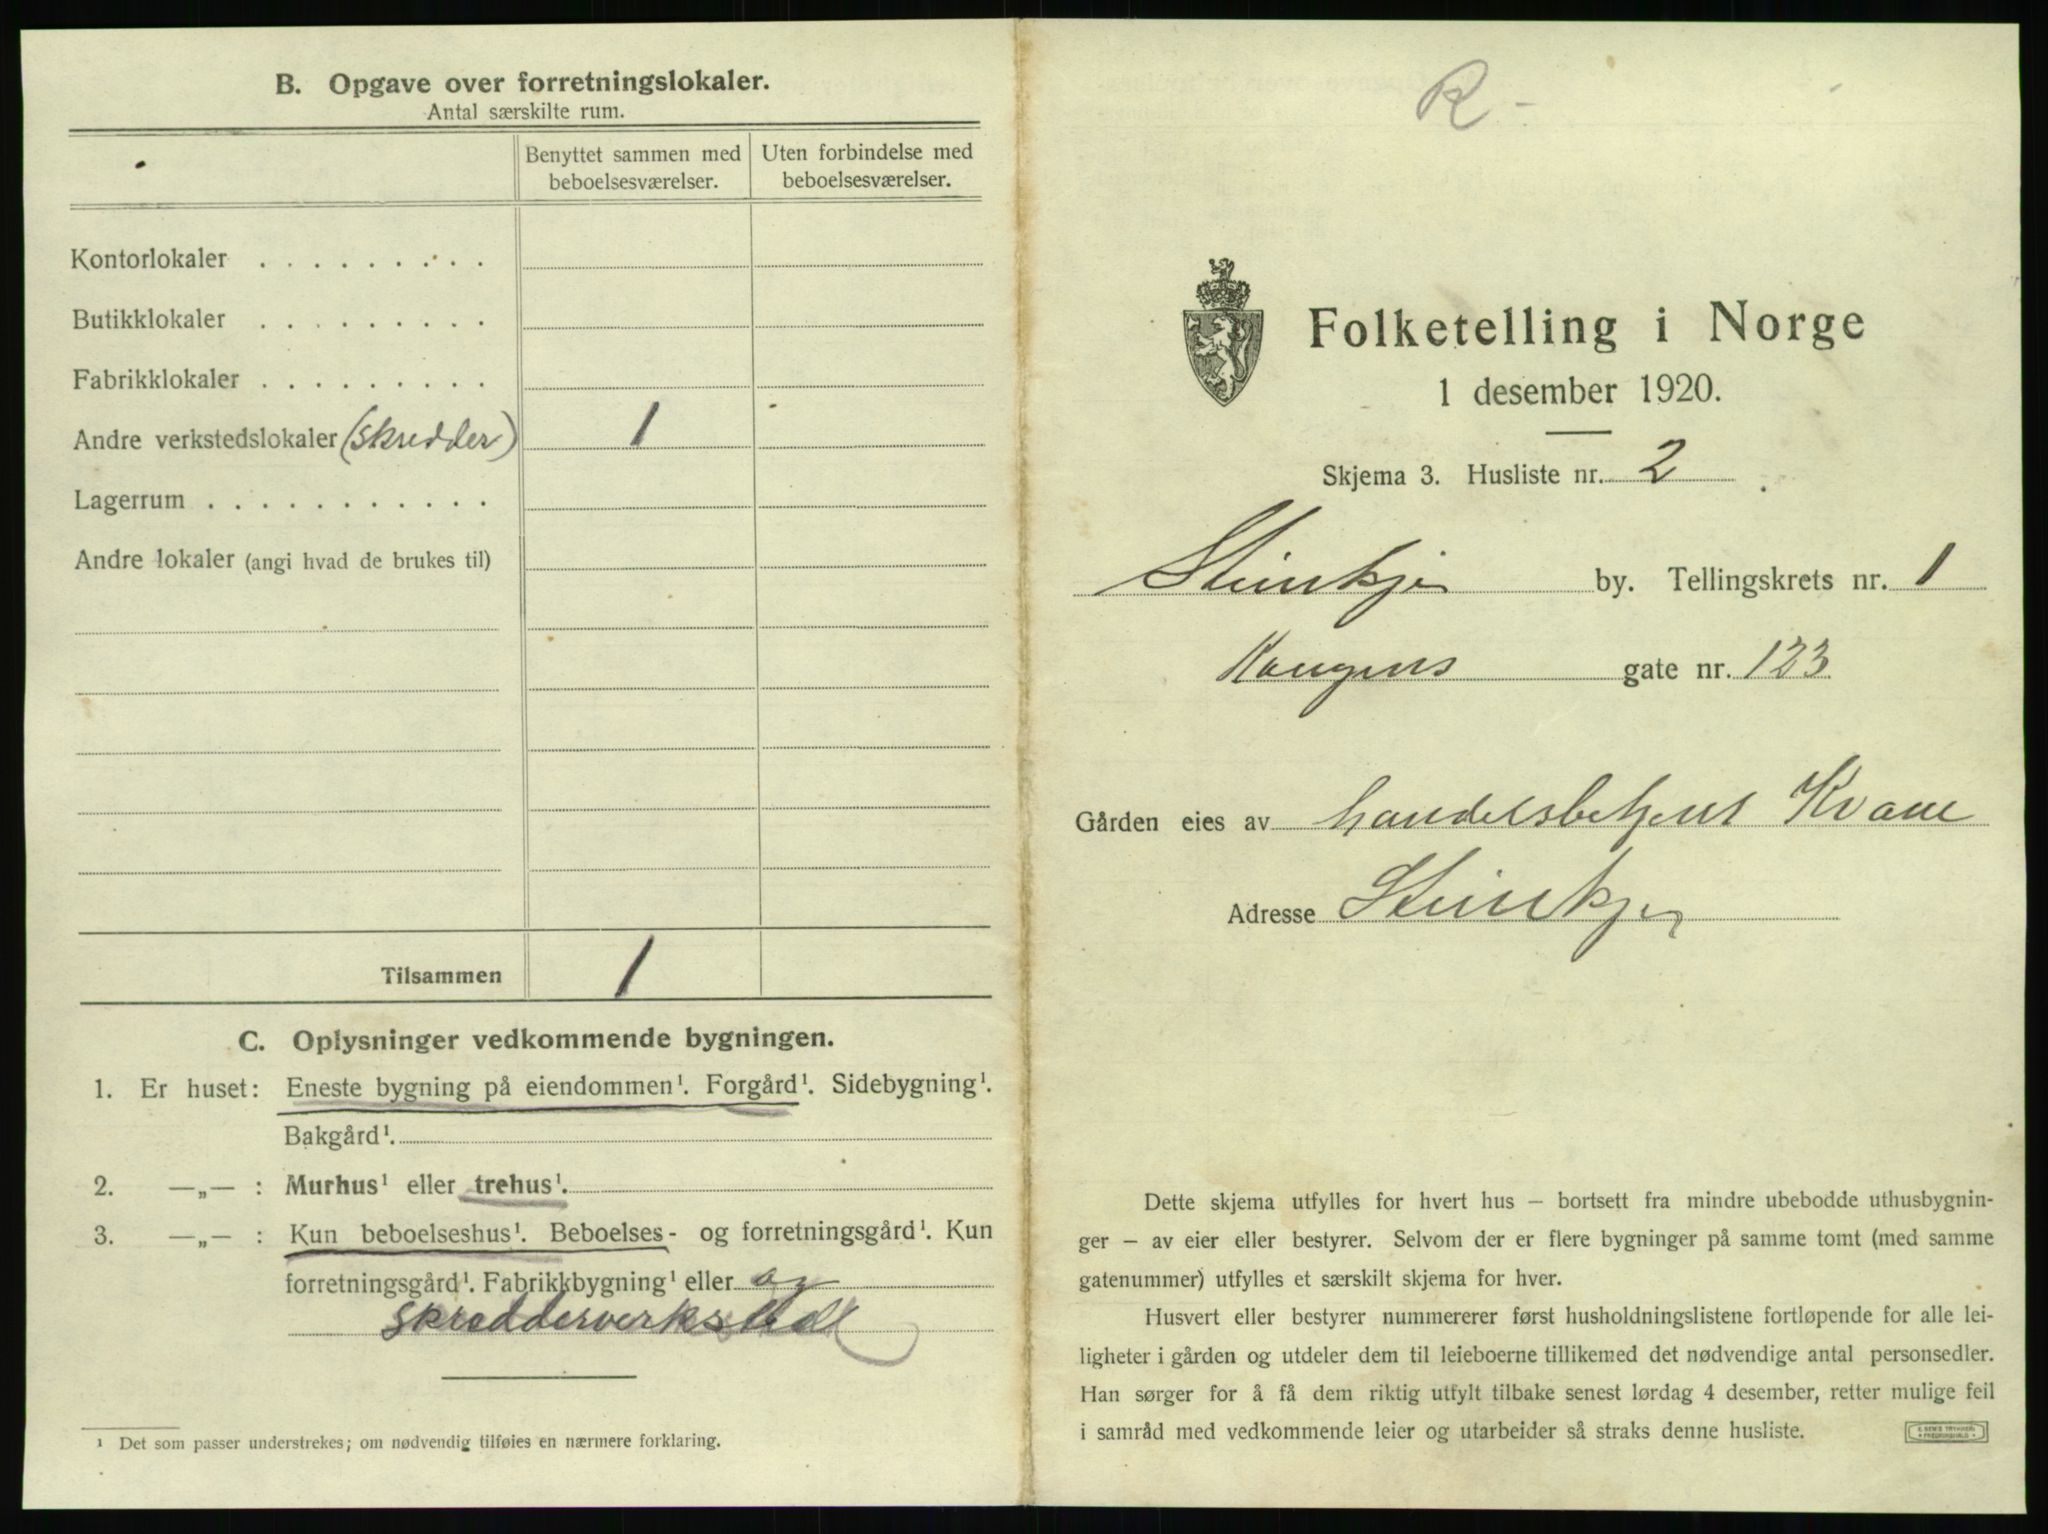 B. Opgave over forretningslokaler.
Antal særskilte rum.
Benyttet sammen med beboelsesværelser.
Uten forbindelse med beboelsesværelser.
Kontorlokaler . . . . . . . . .
Butikklokaler . . . . . . . . .
Fabrikklokaler . . . . . . . . .
Andre verkstedslokaler (skredder) 1
Lagerrum . . . . . . . . . . .
Andre lokaler (angi hvad de brukes til)
Tilsammen 1
C. Oplysninger vedkommende bygningen.
1. Er huset: Eneste bygning på eiendommen¹. Forgård¹. Sidebygning¹.
Bakgård¹.
2. —„— : Murhus¹ eller trehus¹.
3. —„— : Kun beboelseshus¹. Beboelses- og forretningsgård¹. Kun
forretningsgård¹. Fabrikkbygning¹ eller og
skredderverksted
¹ Det som passer understrekes; om nødvendig tilføies en nærmere forklaring.
R -
Folketelling i Norge
1 desember 1920.
Skjema 3. Husliste nr. 2
Steinkjer by. Tellingskrets nr. 1
Kongens gate nr. 123
Gården eies av handelsbetjent Kvam
Adresse Steinkjer
Dette skjema utfylles for hvert hus – bortsett fra mindre ubebodde uthusbygnin-
ger – av eier eller bestyrer. Selvom der er flere bygninger på samme tomt (med samme
gatenummer) utfylles et særskilt skjema for hver.
Husvert eller bestyrer nummererer først husholdningslistene fortløpende for alle lei-
ligheter i gården og utdeler dem til leieboerne tillikemed det nødvendige antal personsedler.
Han sørger for å få dem riktig utfylt tilbake senest lørdag 4 desember, retter mulige feil
i samråd med vedkommende leier og utarbeider så straks denne husliste.